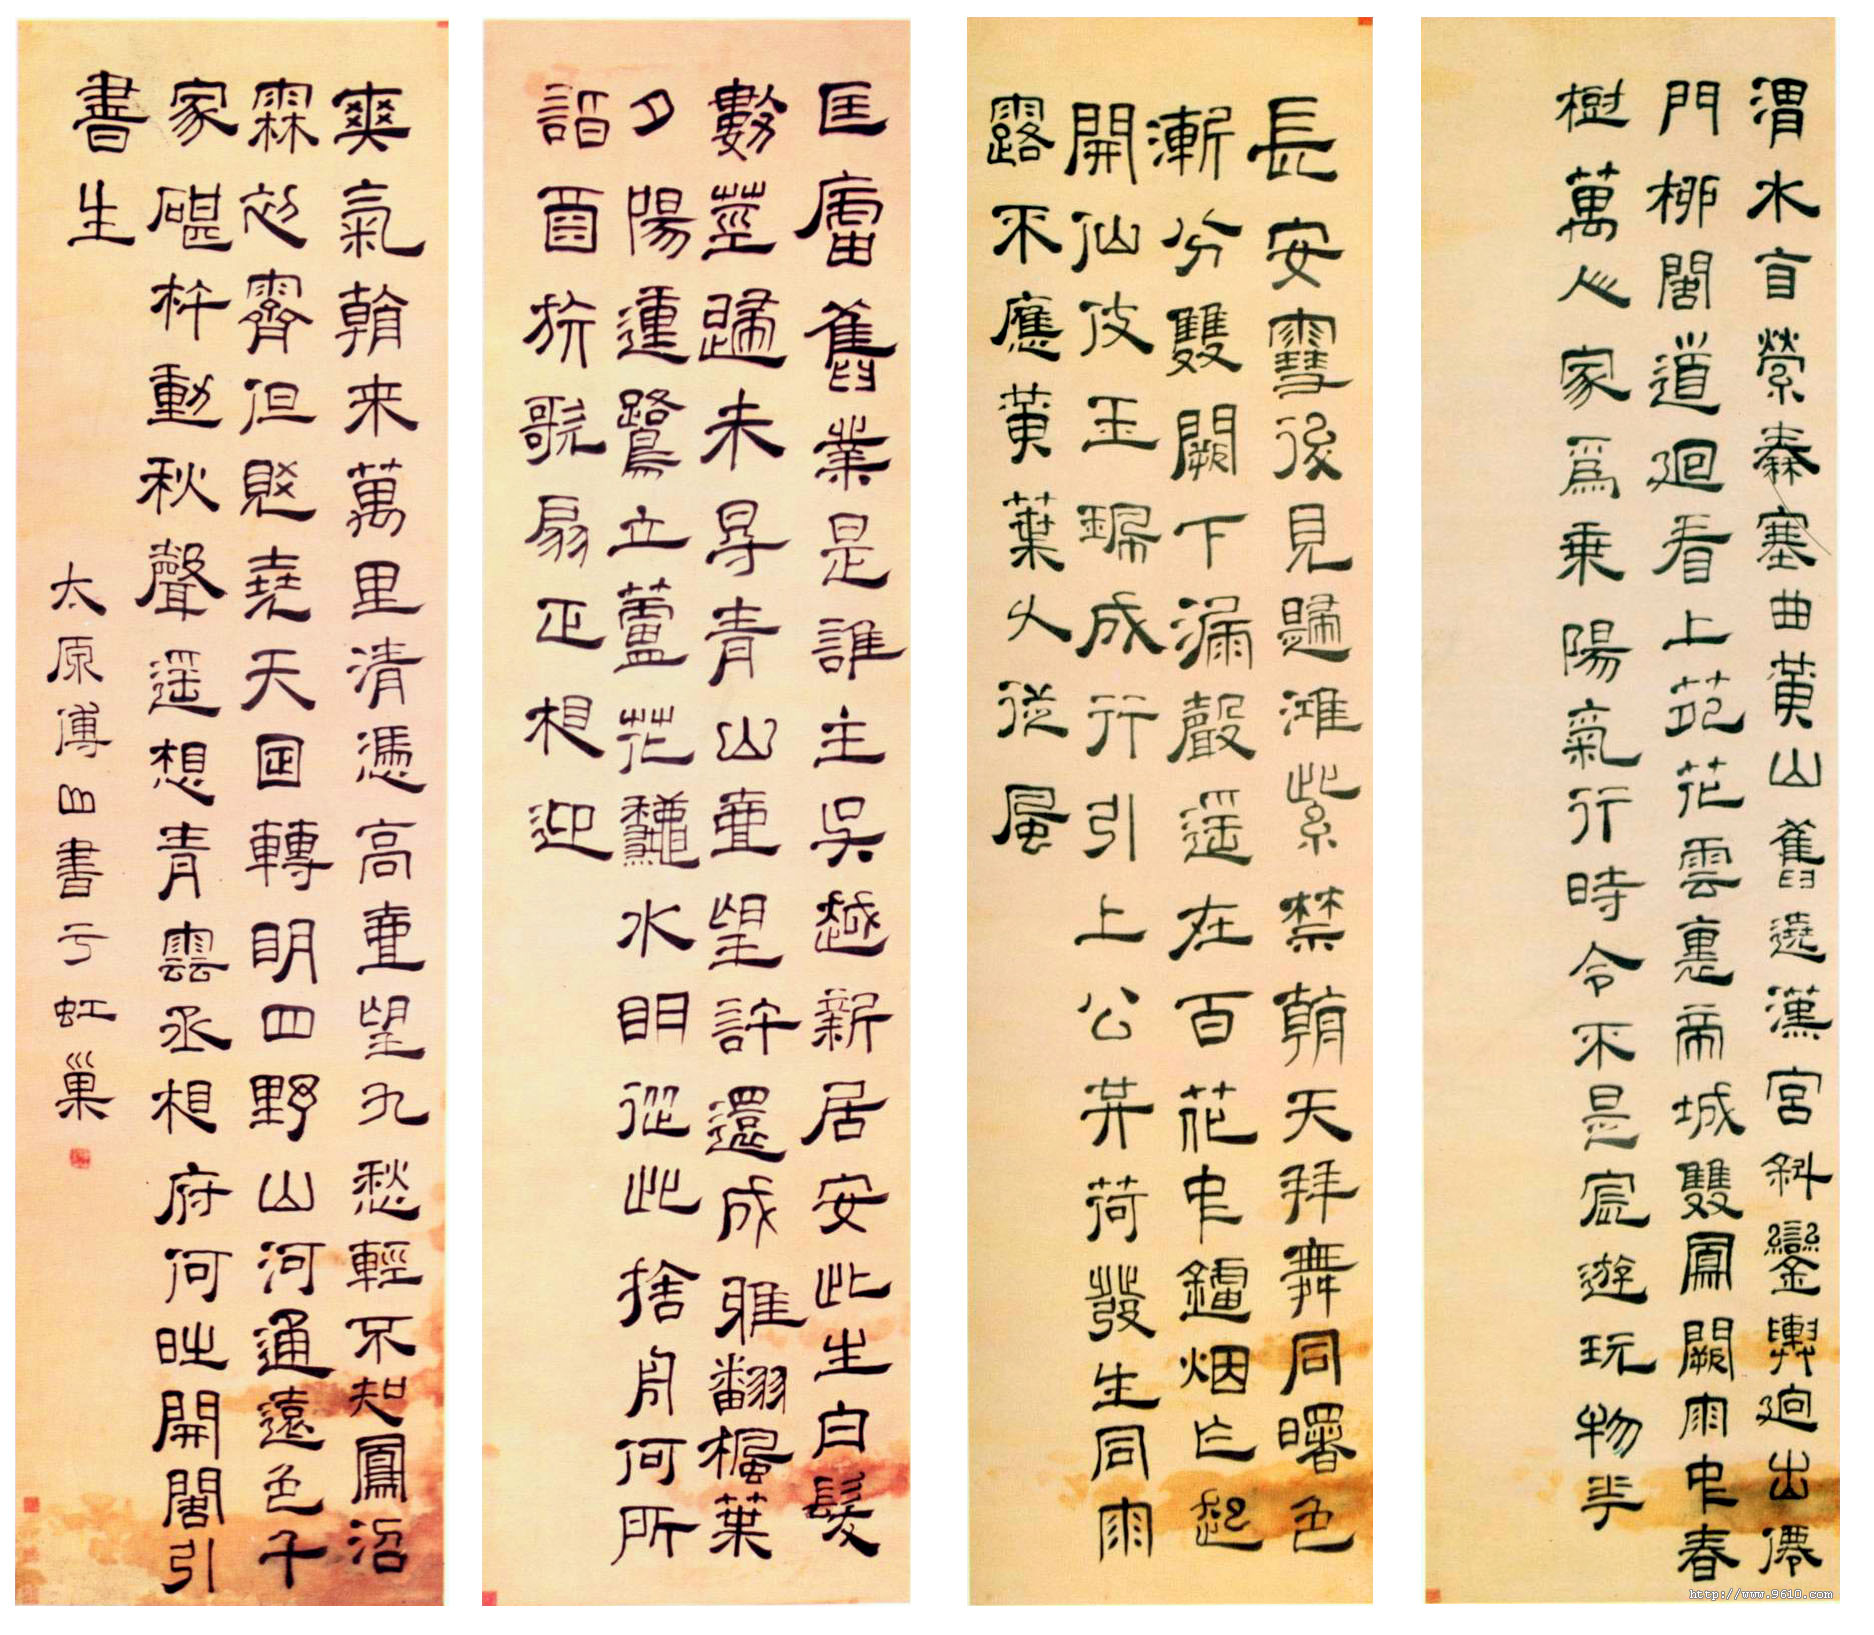 渭水自縈秦塞曲黃山舊遶漢宮斜鑾輿迥出僊
門柳閣道迴看上苑花雲裏帝城雙鳳闕雨中春
樹萬人家爲乘陽氣行時令不是宸遊玩物華
長安雪後見歸鴻紫禁朝天拜舞同曙色
漸分雙闕下漏聲遙在百花中鑪烟乍起
開仙仗玉珮成行引上公共荷發生同雨
露不應黃葉久從風
匡廬舊業是誰主吳越新居安此生白髮
數莖歸未得青山壹望計還成鴉翻楓葉
夕陽動鷺立蘆花秋水明從此捨舟何所
詣酒旗歌扇正相迎
爽氣朝来萬里清憑高壹望九愁輕不知鳳沼
霖初霽但覺堯天日轉明四野山河通遠色千
家碪杵動秋聲遙想青雲丞相府何時開閣引
書生
太原傅山書于虹巢
http://www.9610.com